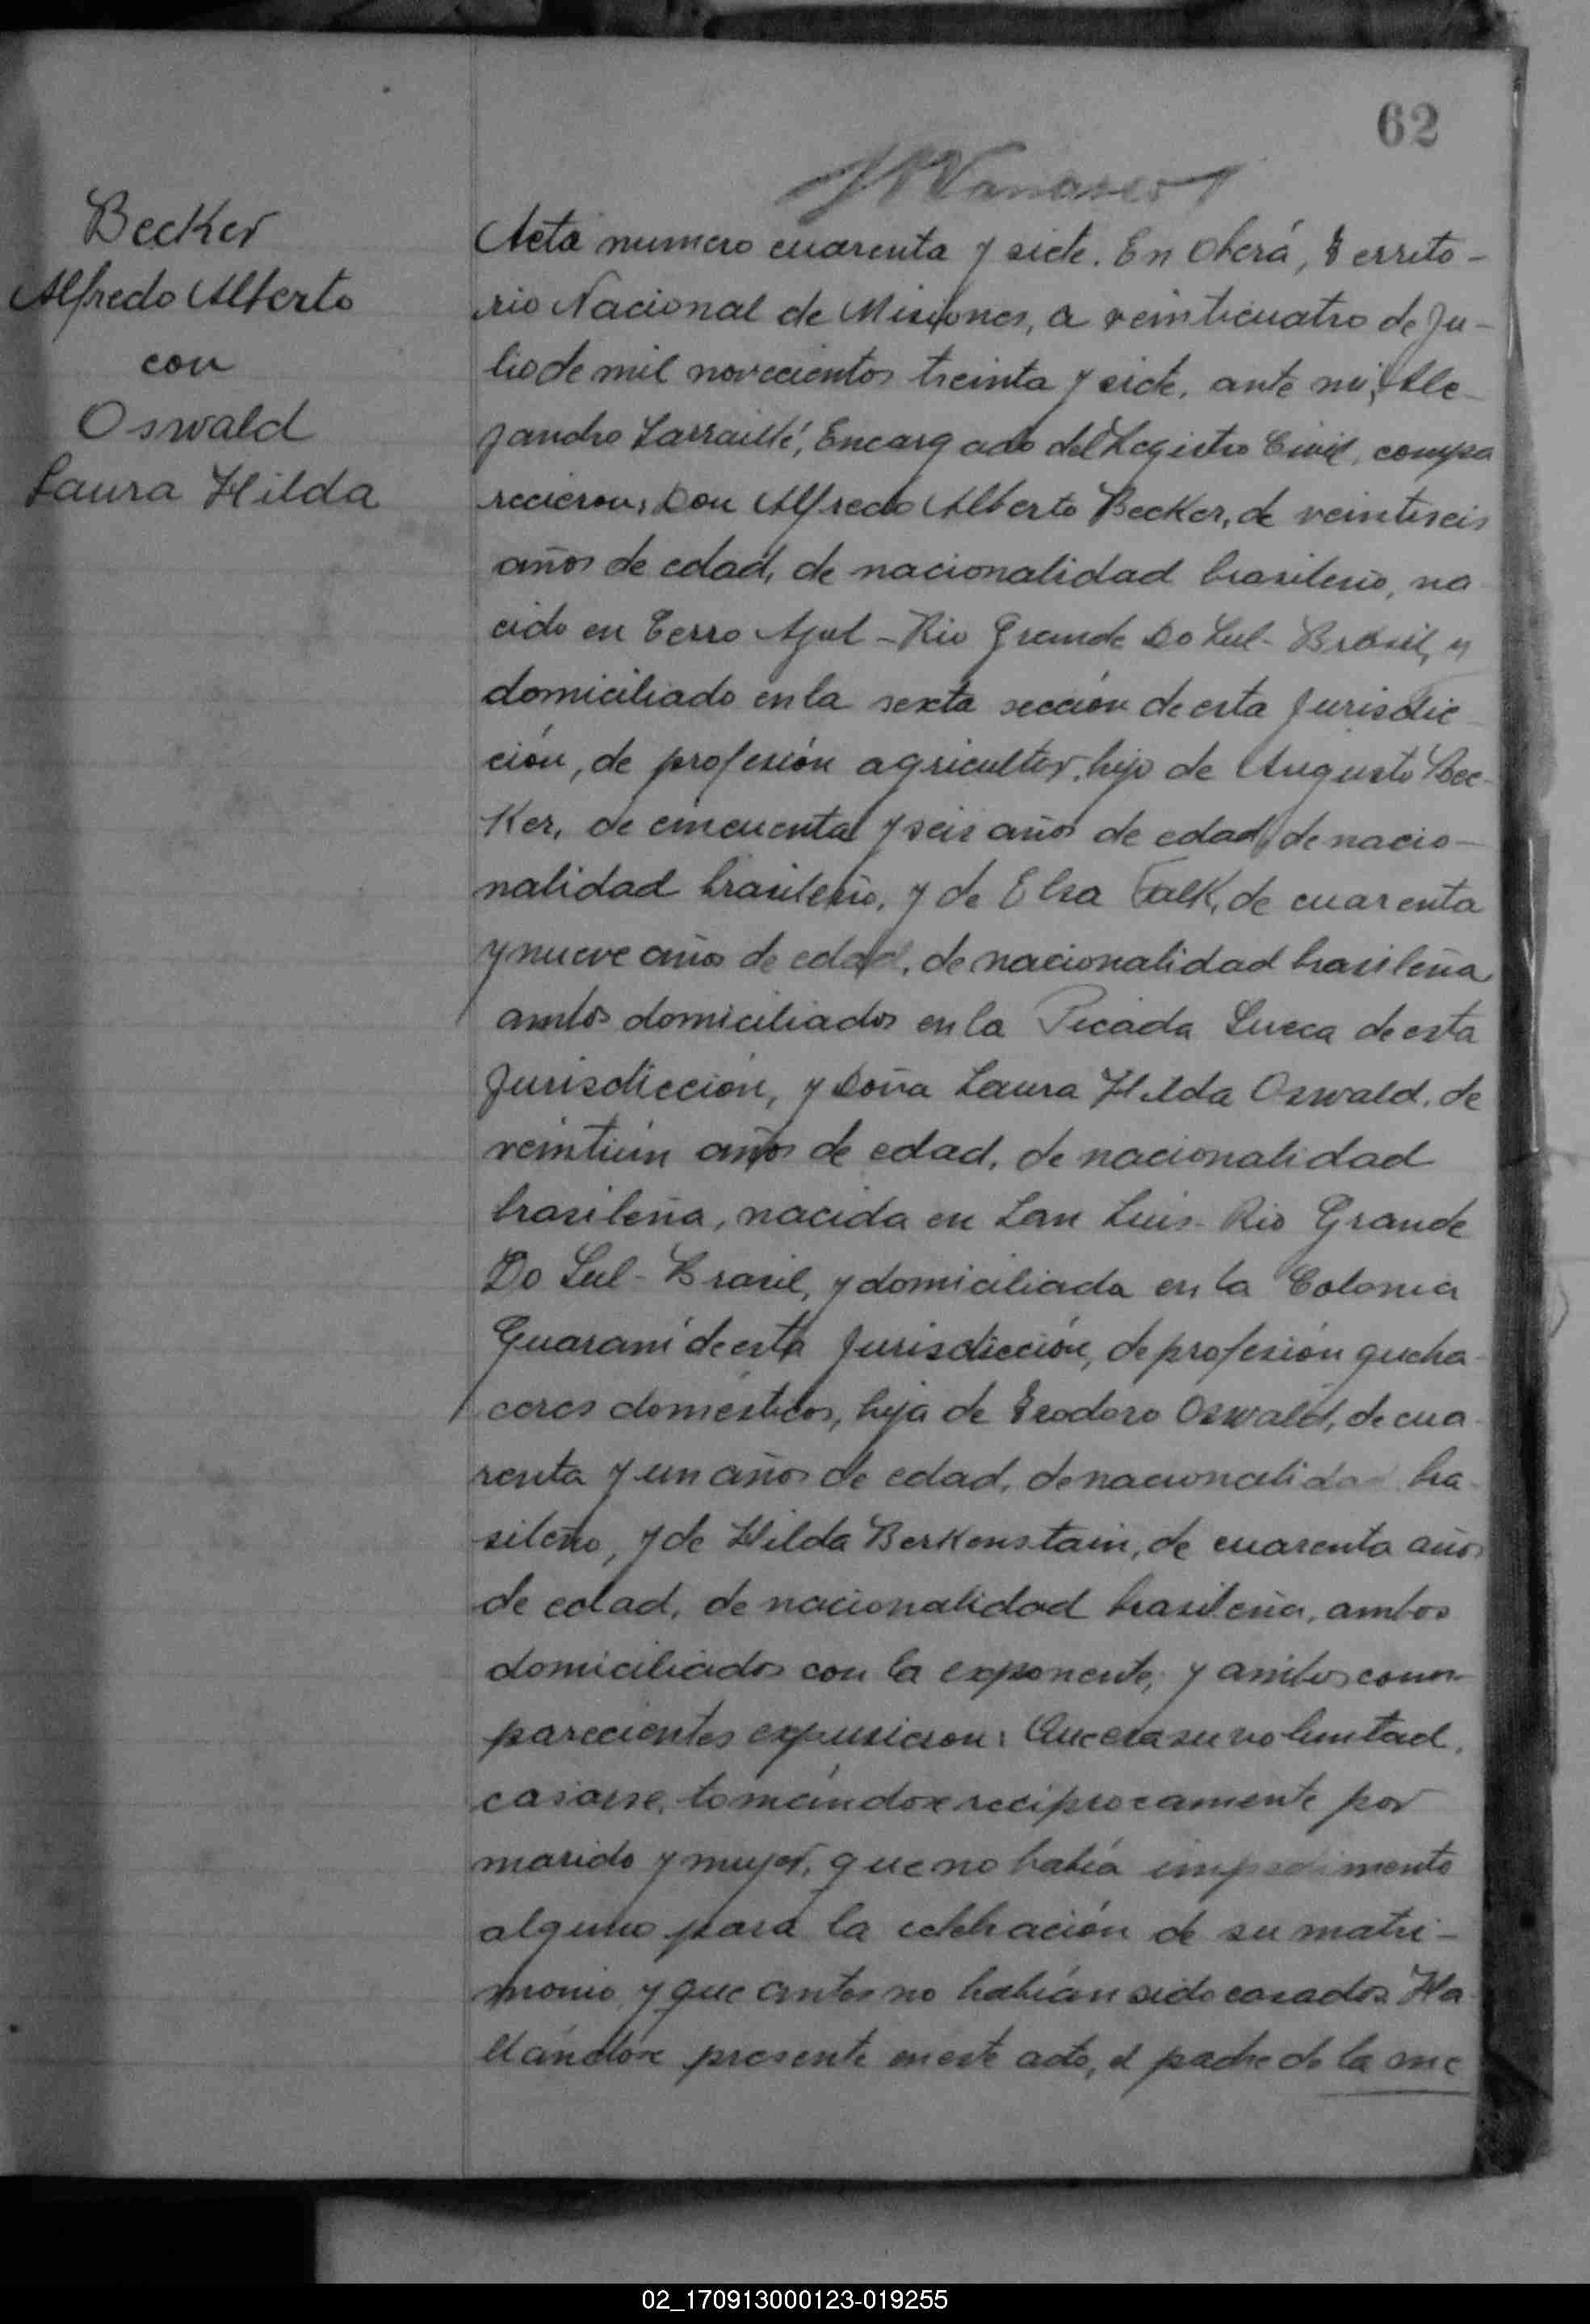 62
Becker
Alfredo Alberto
con
Oswald
Laura Hilda
Acta numero cuarenta y siete. En Oberá, Territo-
rio Nacional de Misiones, a veinticuatro de Ju-
lio de mil novecientos treinta y siete, ante mi, Ale-
jandro Larraillé, Encargado del Registro Civil, compa
recieron: Don Alfredo Alberto Becker, de veintiseis
años de edad, de nacionalidad brasileño, na
cido en Cerro Azul - Rio Grande Do Sul - Brasil, y
domiciliado en la sexta sección de esta Jurisdic
ción, de profesión agricultor, hijo de Augusto Bec-
Ker, de cincuenta y seis años de edad, de nacio-
nalidad brasileño, y de Elsa Falk, de cuarenta
y nueve años de edad, de nacionalidad brasileña
ambos domiciliados en la Picada Sueca de esta
Jurisdicción, y Doña Laura Hilda Oswald, de
veintiún años de edad, de nacionalidad
brasileña, nacida en San Luis - Rio Grande
Do Sul - Brasil, y domiciliada en la Colonia
Guaraní de esta Jurisdicción, de profesión queha-
ceres domésticos, hija de Teodoro Oswald, de cua-
renta y un años de edad, de nacionalidad bra-
sileño, y de Hilda Berkenstain, de cuarenta años
de edad, de nacionalidad brasileña, ambos
domiciliados con la exponente; y ambos com-
parecientes expusieron: Que era su voluntad
casarse, tomándose reciprocamente por
marido y mujer, que no había impedimento
alguno para la celebración de su matri-
monio y que antes no habían sido casados. Ha-
llándose presente en este acto, el padre de la me
02_170913000123-019255